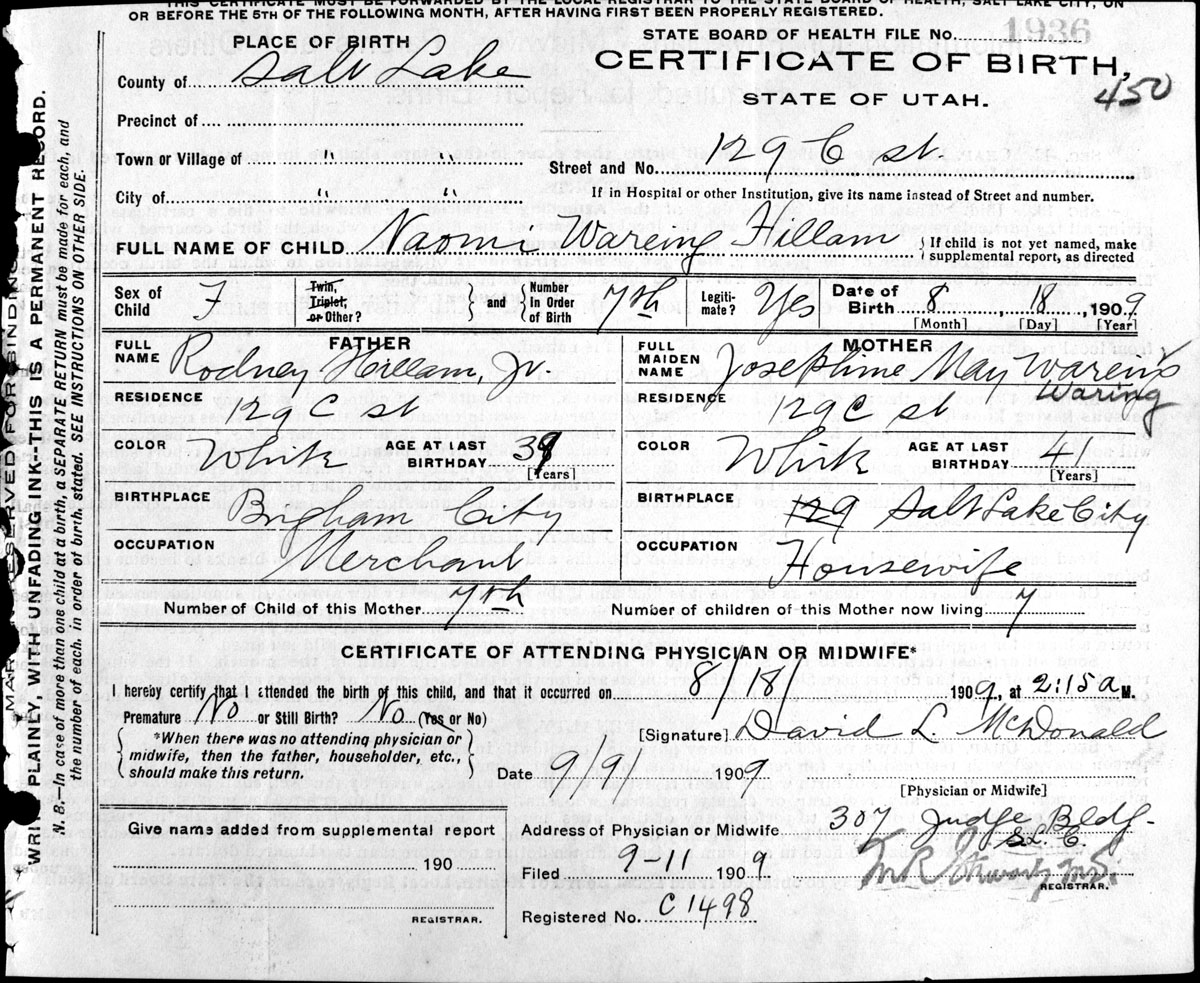 THIS CERTIFICATE MUST BE FORWARDED BY THE LOCAL REGISTRAR TO THE STATE BOARD OF HEALTH, SALT LAKE CITY, ON
OR BEFORE THE 5TH OF THE FOLLOWING MONTH, AFTER HAVING FIRST BEEN PROPERLY REGISTERED.
STATE BOARD OF HEALTH FILE No. 1936
PLACE OF BIRTH
CERTIFICATE OF BIRTH,
County of Salt Lake
STATE OF UTAH.
450
Precinct of
Town or Village of " "
Street and No. 129 C st
City of " "
If in Hospital or other Institution, give its name instead of Street and number.
FULL NAME OF CHILD Naomi Wareing Hillam { If child is not yet named, make supplemental report, as directed
Sex of Child F Twin, Triplet, or Other? } and { Number In Order of Birth 7th Legitimate? Yes Date of Birth 8, 18, 1909
[Month] [Day] [Year]
FATHER
MOTHER
FULL NAME Rodney Hillam, Jr.
FULL MAIDEN NAME Josephine May Wareing
Waring
RESIDENCE 129 C st
RESIDENCE 129 C st
COLOR White AGE AT LAST BIRTHDAY 39 [Years]
COLOR White AGE AT LAST BIRTHDAY 41 [Years]
BIRTHPLACE Brigham City
BIRTHPLACE 129 Salt Lake City
OCCUPATION Merchant
OCCUPATION Housewife
Number of Child of this Mother 7th Number of children of this Mother now living 7
CERTIFICATE OF ATTENDING PHYSICIAN OR MIDWIFE*
I hereby certify that I attended the birth of this child, and that it occurred on 8/18/ 1909, at 2:15 a M.
Premature No or Still Birth? No (Yes or No)
[Signature] David L. McDonald
{ *When there was no attending physician or
midwife, then the father, householder, etc.,
should make this return. }
Date 9/9/ 1909
[Physician or Midwife]
Give name added from supplemental report
190
REGISTRAR.
Address of Physician or Midwife 307 Judge Bldg.
S.L.C.
Filed 9-11 1909
REGISTRAR.
Registered No. C 1498
MARGIN RESERVED FOR BINDING
WRITE PLAINLY, WITH UNFADING INK--THIS IS A PERMANENT RECORD.
N. B.--In case of more than one child at a birth, a SEPARATE RETURN must be made for each, and
the number of each, in order of birth, stated. SEE INSTRUCTIONS ON OTHER SIDE.